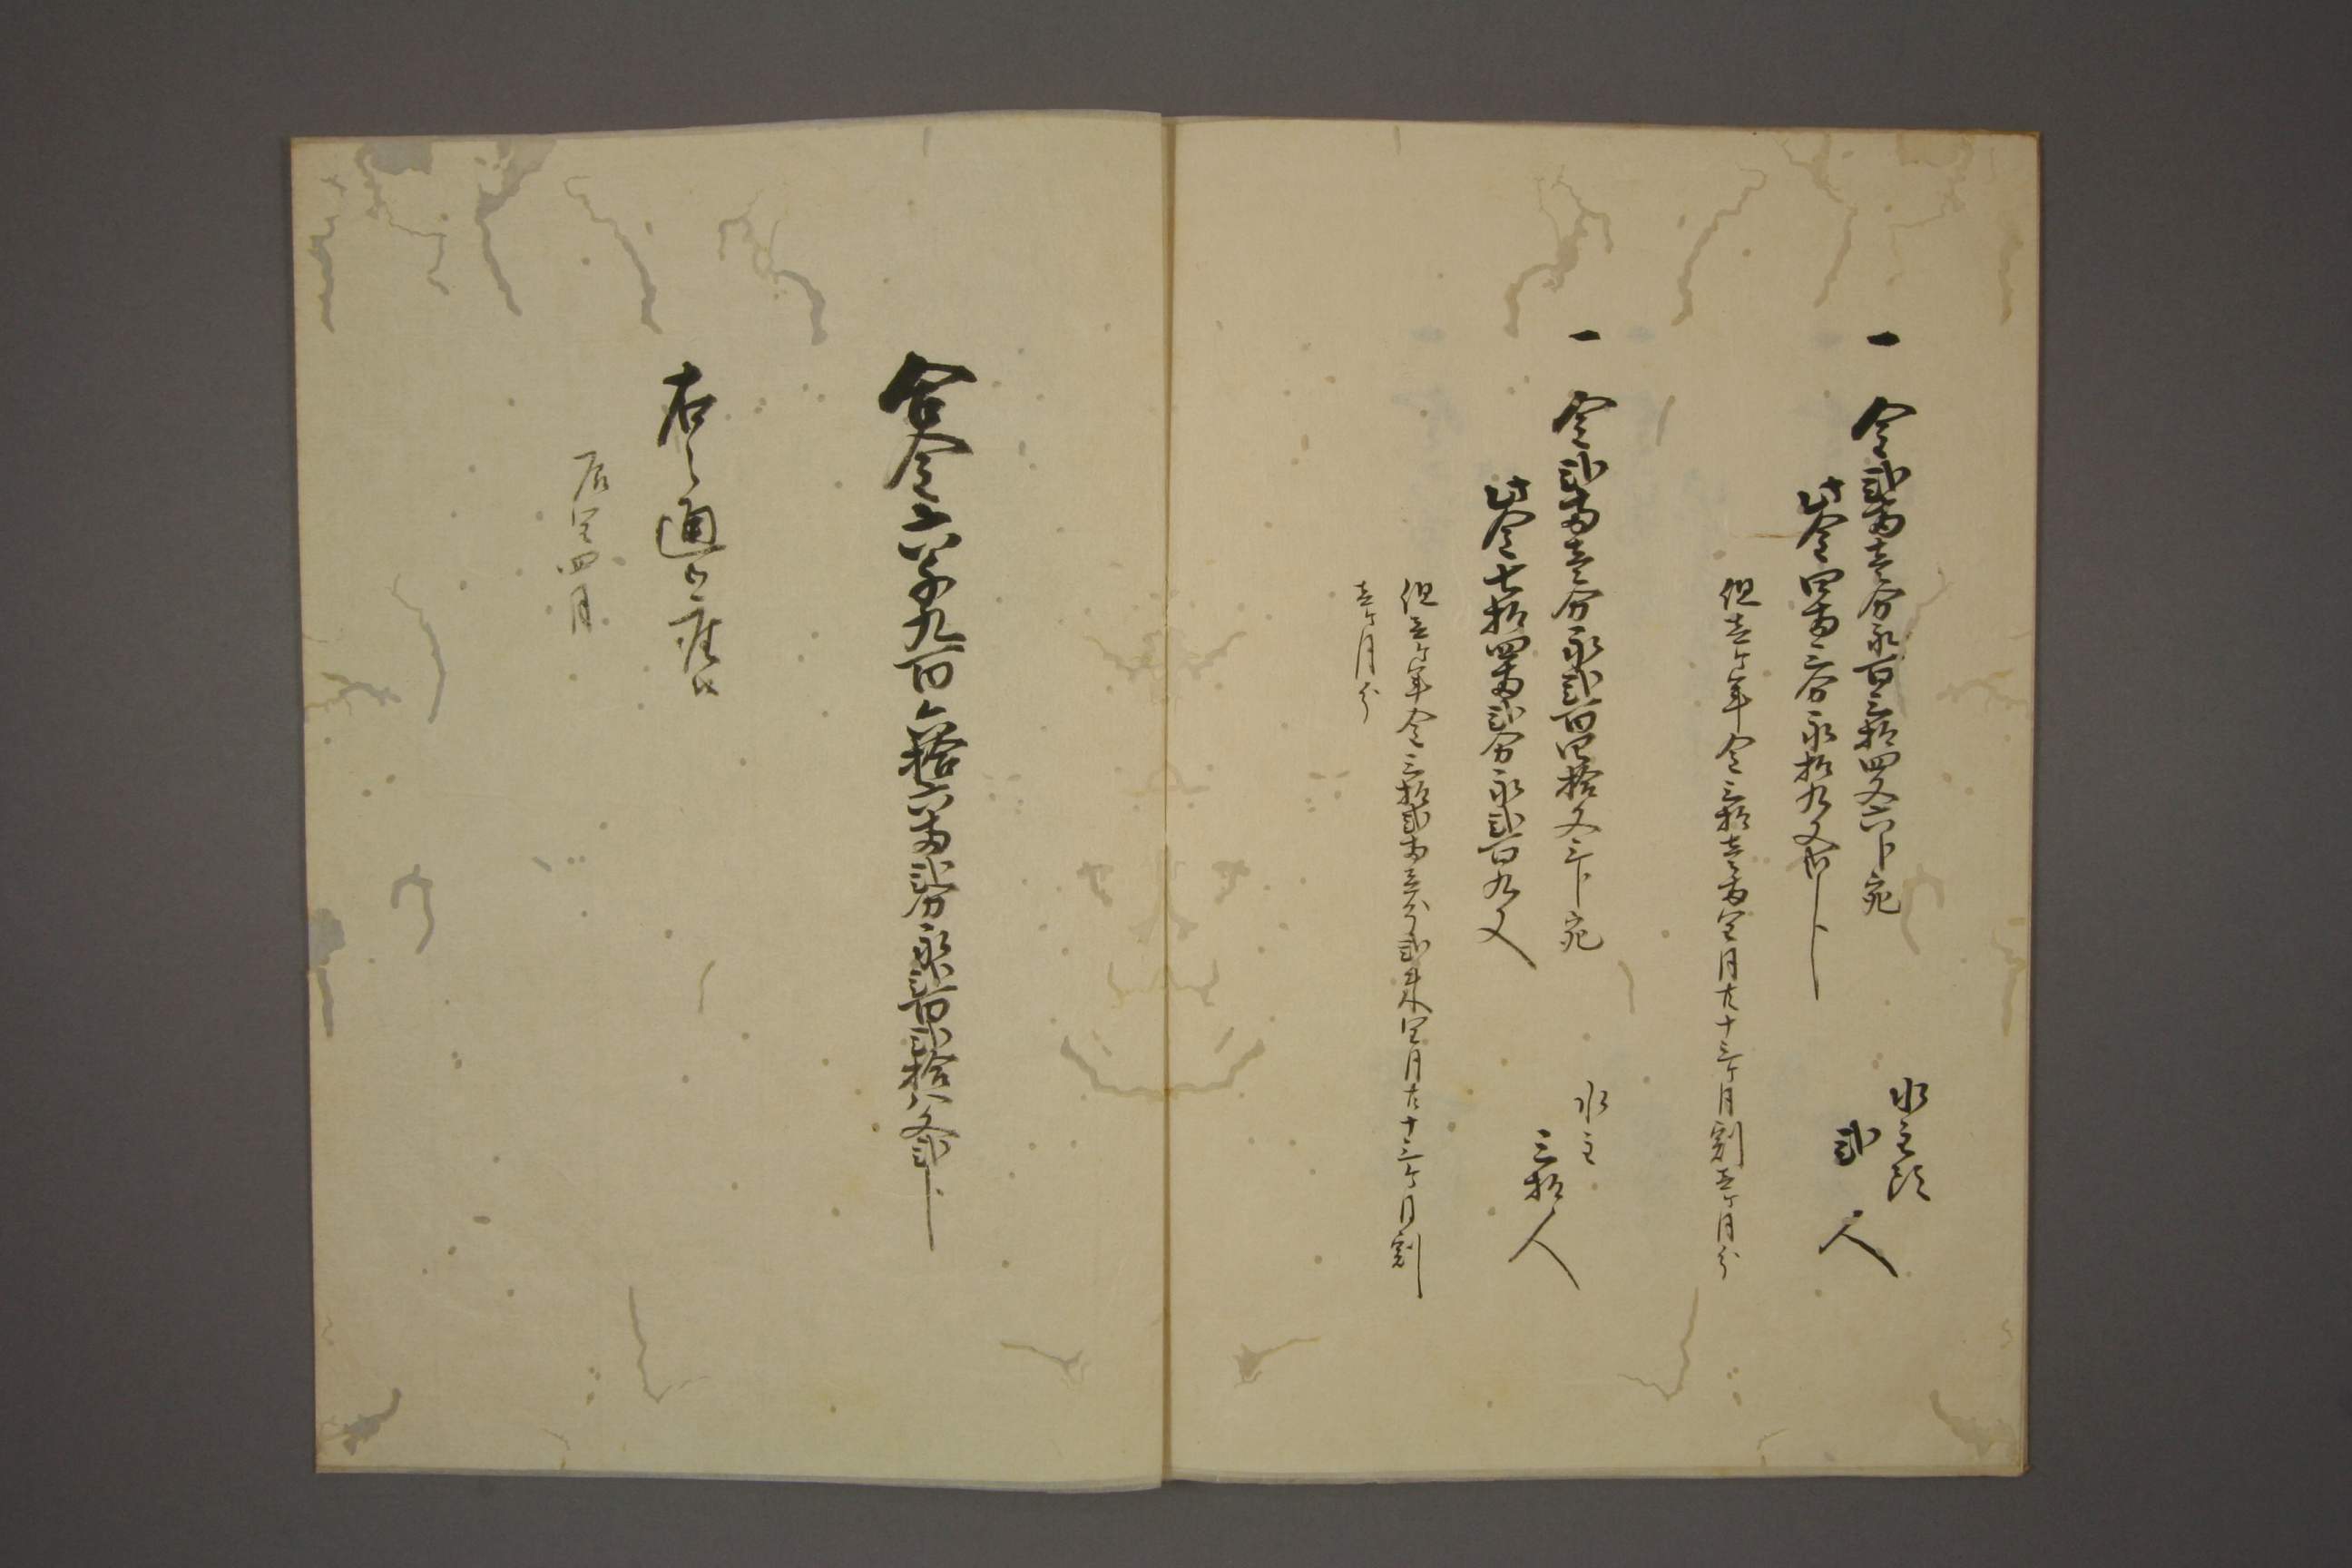 一 金弐両壱分永百三拾四文六分宛 水主頭
此金四両三分永拾九文弐分 弐人
但壱ヶ年金三拾壱両閏月共十三ヶ月割壱ヶ月分
一 金弐両壱分永弐百四拾文三分宛 水主
此金七拾四両弐分永弐百九文 三拾人
但壱ヶ年金三拾弐両壱分弐朱閏月共十三ヶ月割
壱ヶ月分
合金六千九百六拾六両弐分永弐百弐拾八文弐分
右之通御座候
辰閏四月